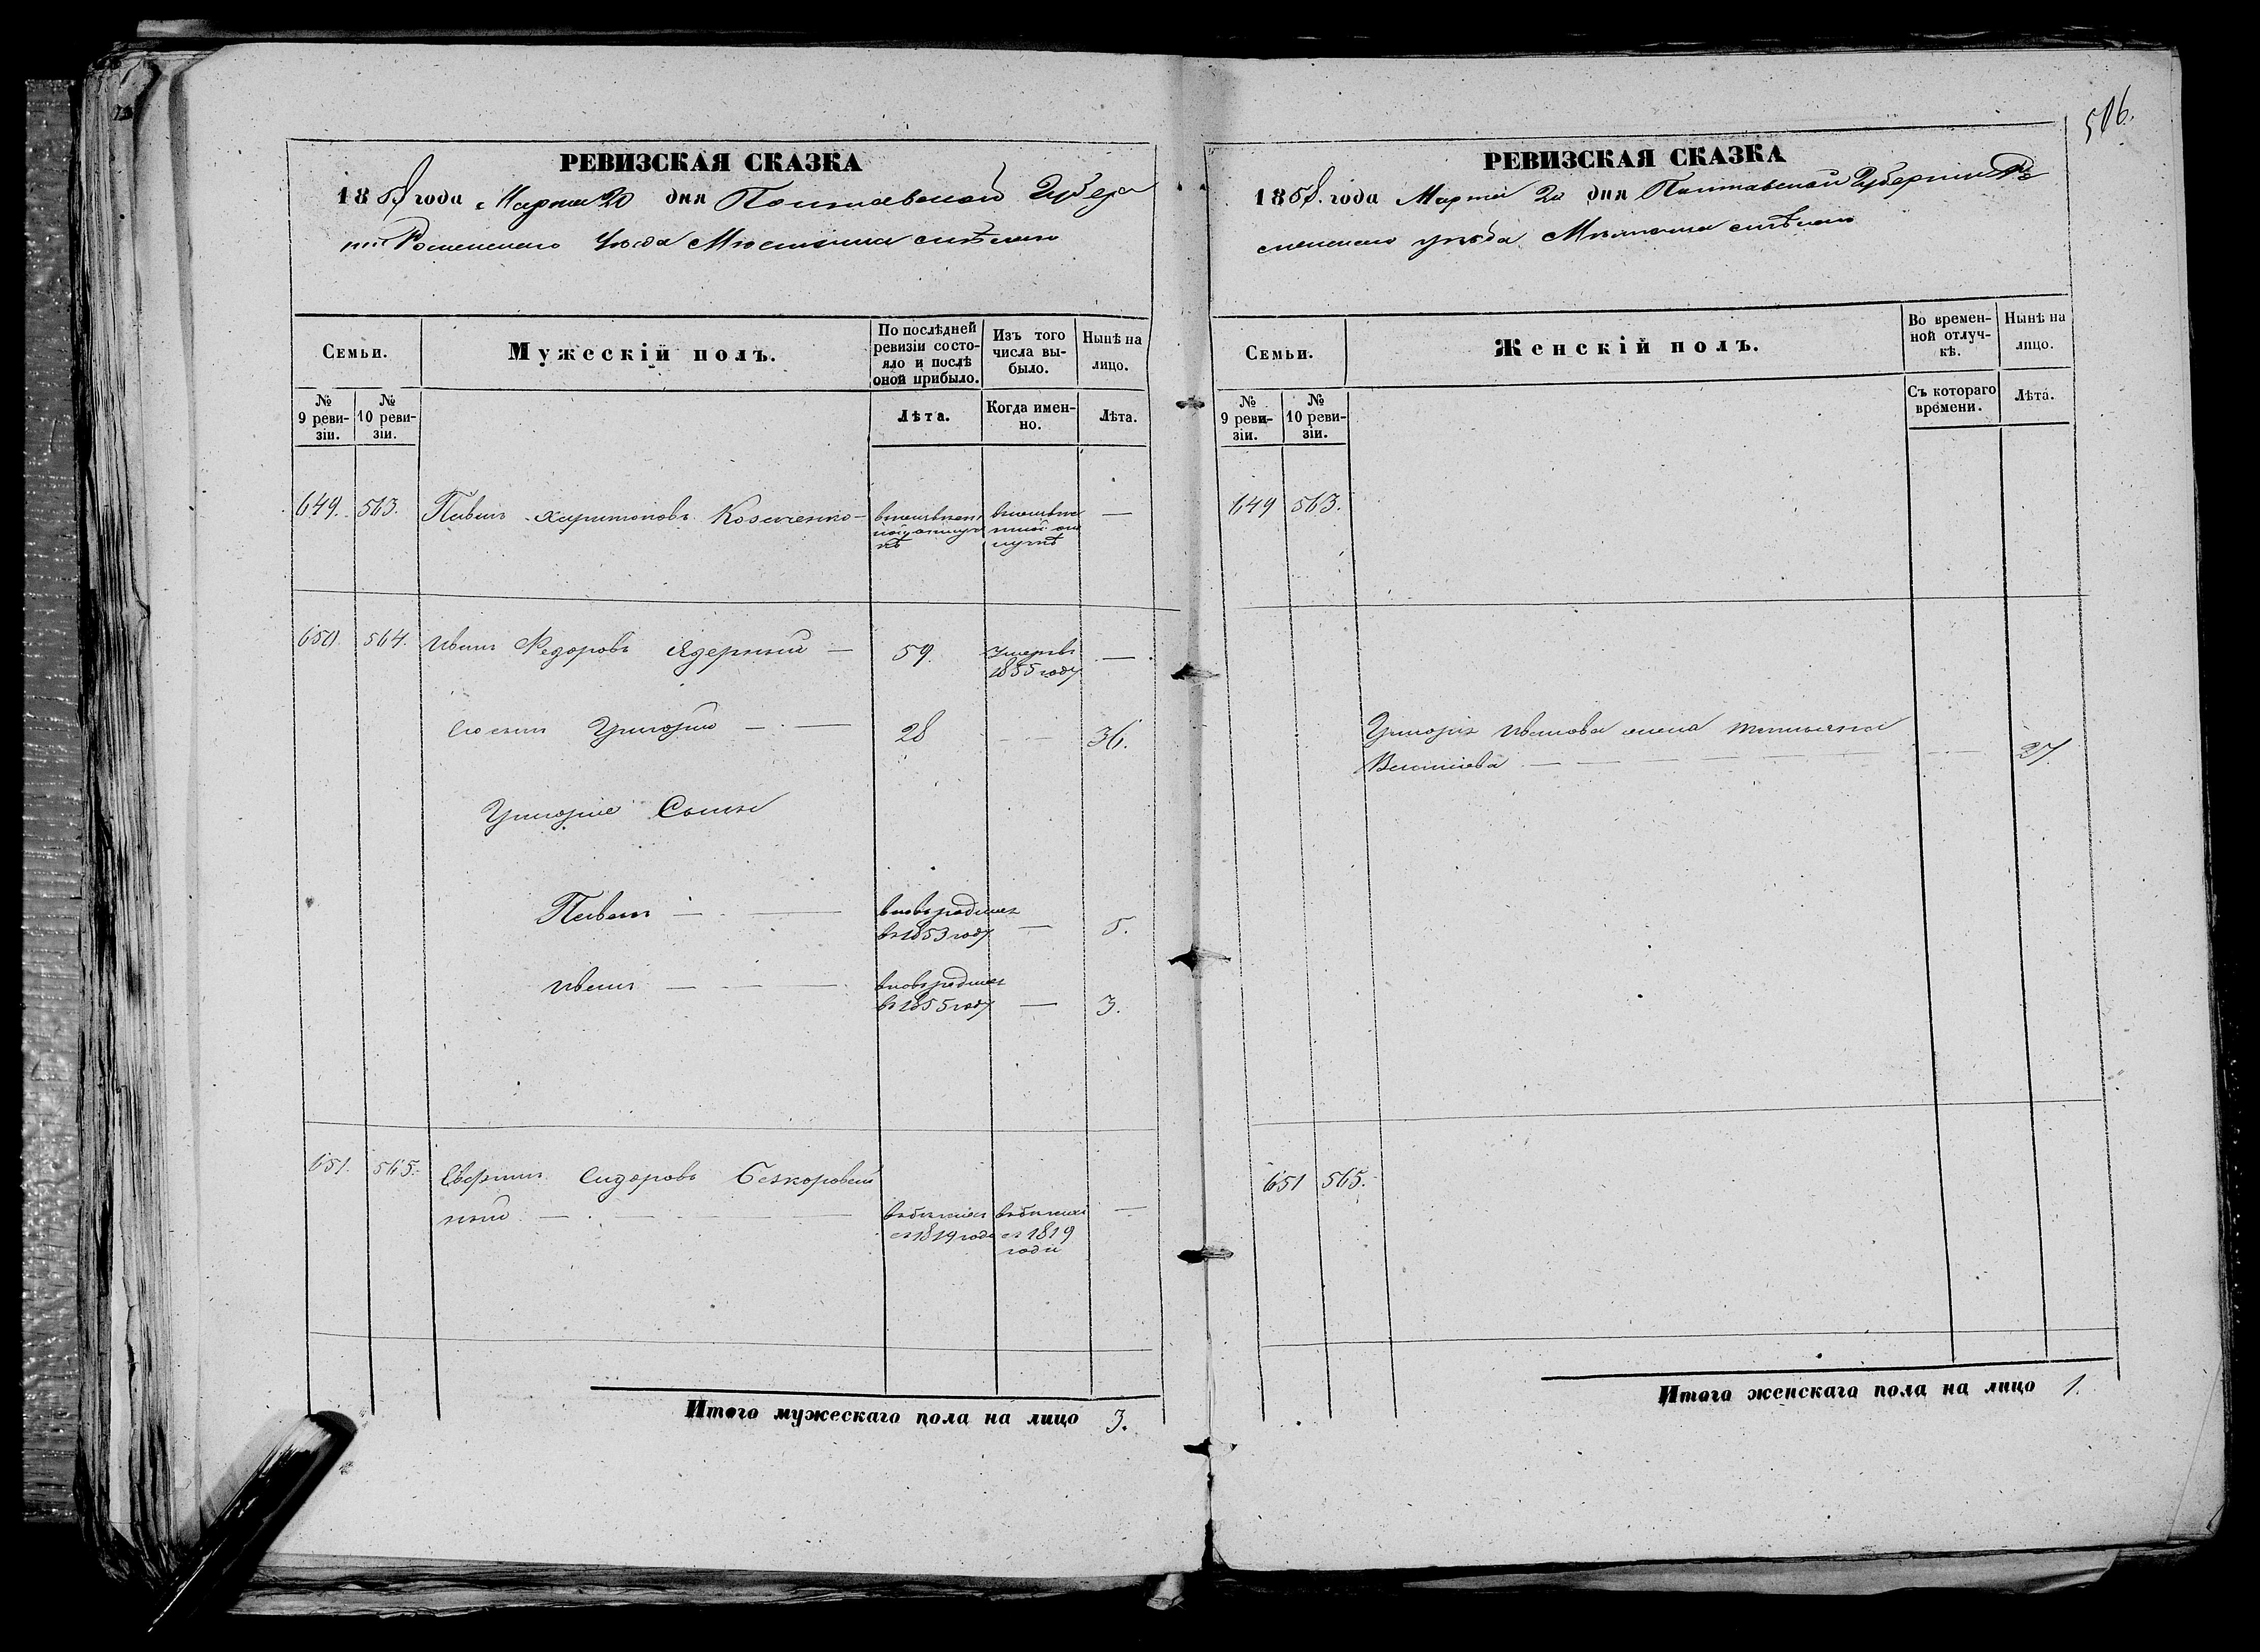 506.
РЕВИЗСКАЯ СКАЗКА
1858 года Марта 20 дня Полтавской Губер
нiи Роменскаго Уѣзда Мѣстечка Смѣлаго
Семьи.
Мужескiй полъ.
По послѣдней ревизiи состояло и послѣ оной прибыло.
Изъ того числа выбыло.
Нынѣ на лицо.
№ 9 ревизiи.
№ 10 ревизiи.
Лѣта.
Когда именно.
Лѣта.
649. 563. Павелъ Харитоновъ —
650. 564. Иванъ Федоровъ Ядерный — 59. умеръ въ —
1855 году
Его сынъ Григорiй — 28 — 36.
Григорiя Сыны
Павелъ — вновь родился
въ 1853 году — 5.
Иванъ — вновь родился
въ 1855 году — 3.
651. 565. Сидоровъ Безкоровай
ный — въ бѣгахъ въ бѣгахъ —
съ 1819 года съ 1819
года
Итого мужескаго пола на лицо 3.
РЕВИЗСКАЯ СКАЗКА
1858. года Марта 20 дня Полтавской Губернiи Ро
менскаго уѣзда Мѣстечка Смѣлаго
Семьи.
Женскiй полъ.
Во временной отлучкѣ.
Нынѣ на лицо.
№ 9 ревизiи.
№ 10 ревизiи.
Съ котораго времени.
Лѣта.
649 563.
Григорiя Иванова жена Татьяна
— 27
651 565.
Итого женскаго пола на лицо 1.